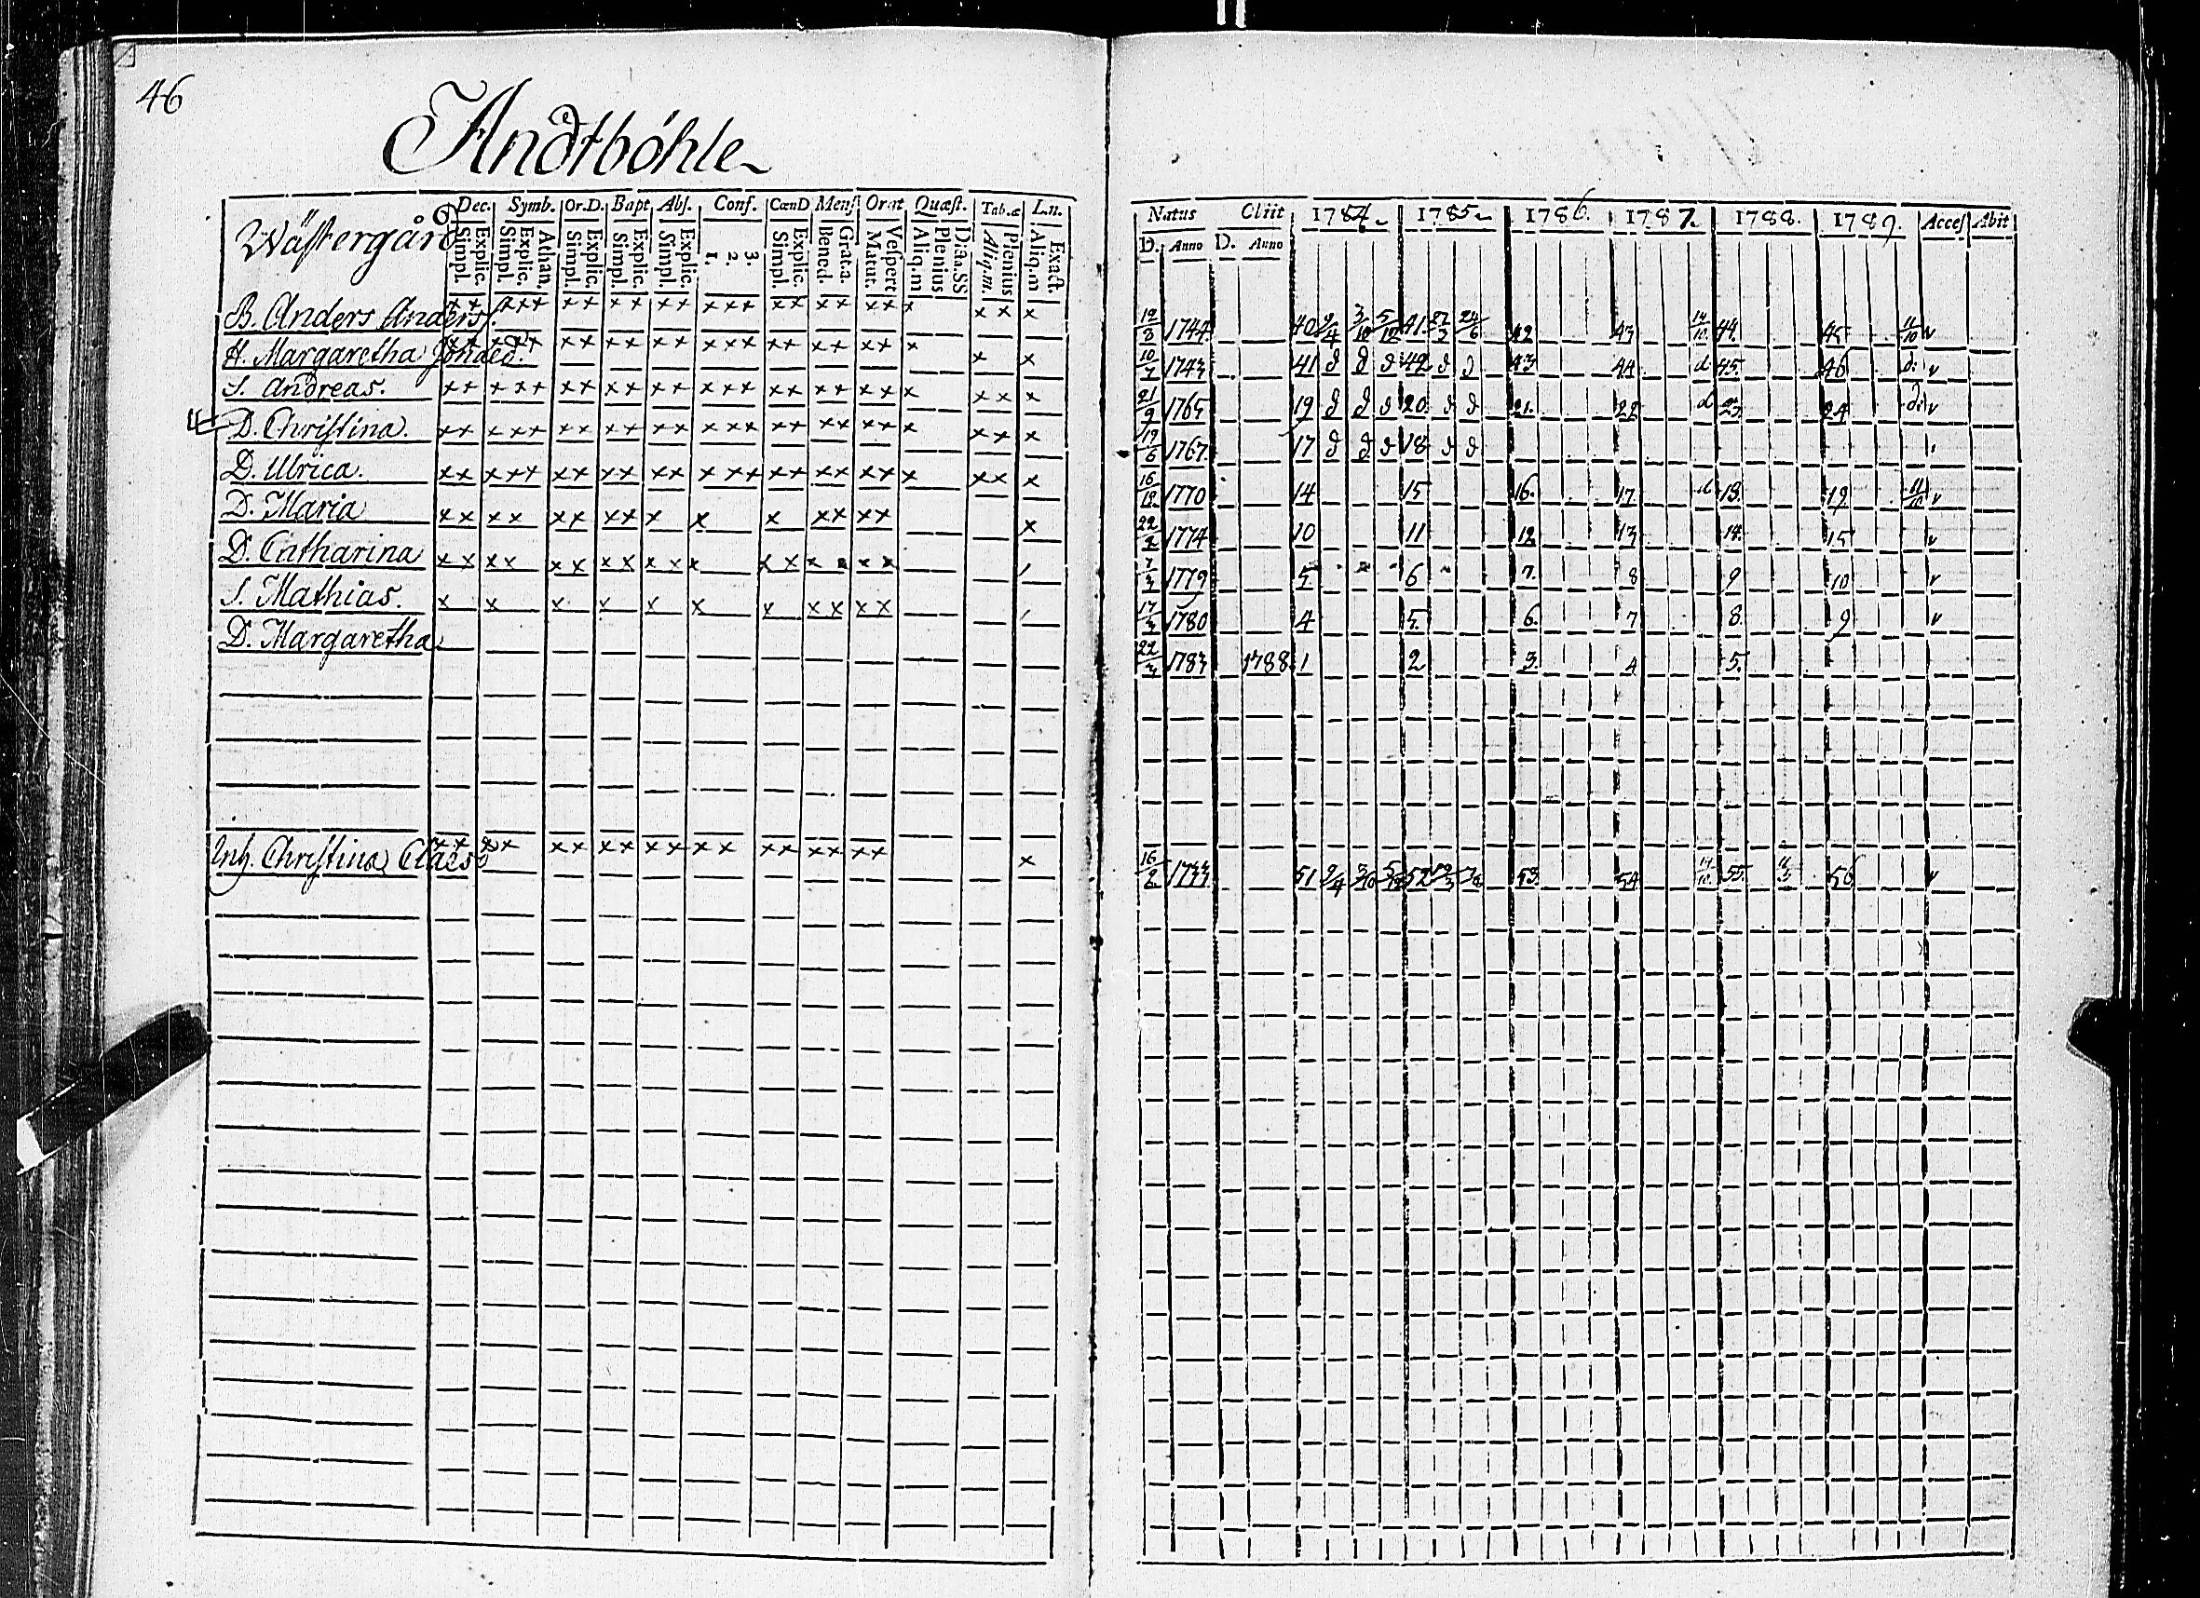 46
Andtböhle
Wästergård
Dec. Symb. Or.D. Bapt Abs. Conf. CœnD Mens Orat Quæst. Tab.æ L.n.
Simpl. Explic. Simpl. Explic. Athan. Simpl. Explic. Simpl. Explic. Simpl. Explic. 1. 2. 3. Simpl. Explic. Bened. Grat.a. Matut. Vespert Aliq.m Plenius Dia.SS Aliq.m. Plenius Aliq.m Exact.
B. Anders Anders.
H. Margaretha
S. Andreas.
D. Christina.
D. Ulrica.
D. Maria
D. Catharina
S. Mathias.
D. Margaretha
Inh. Christina Claesd
Natus Obiit 1784. 1785. 1786. 1787. 1788. 1789. Acces Abit
D. Anno D. Anno
1744. 40 9/4 3/10 5/12 41. 24/6 42 43 14/10 44. 45 11/10 v
10 1743 41 d d d 42. d d 43. 44 d. 45. 46 d: v
21/9 1765 19 d d d 20. d d 21. 22 d 23. 24 d: v
19/6 1767. 17 d d d 18 d d
16/12 1770 14 15 16. 17 d. 18. 19. 11/10 v
22/2 1774 10 11 12 13 14. 15 v
1779 5 6 7. 8 9 10 v
17/3 1780 4 5. 6. 7 8. 9 v
22 1783 1788. 1 2 3. 4 5.
16/2 1733 51 9/4 3/10 5/12 52 53. 54 14/10. 55. 56 v